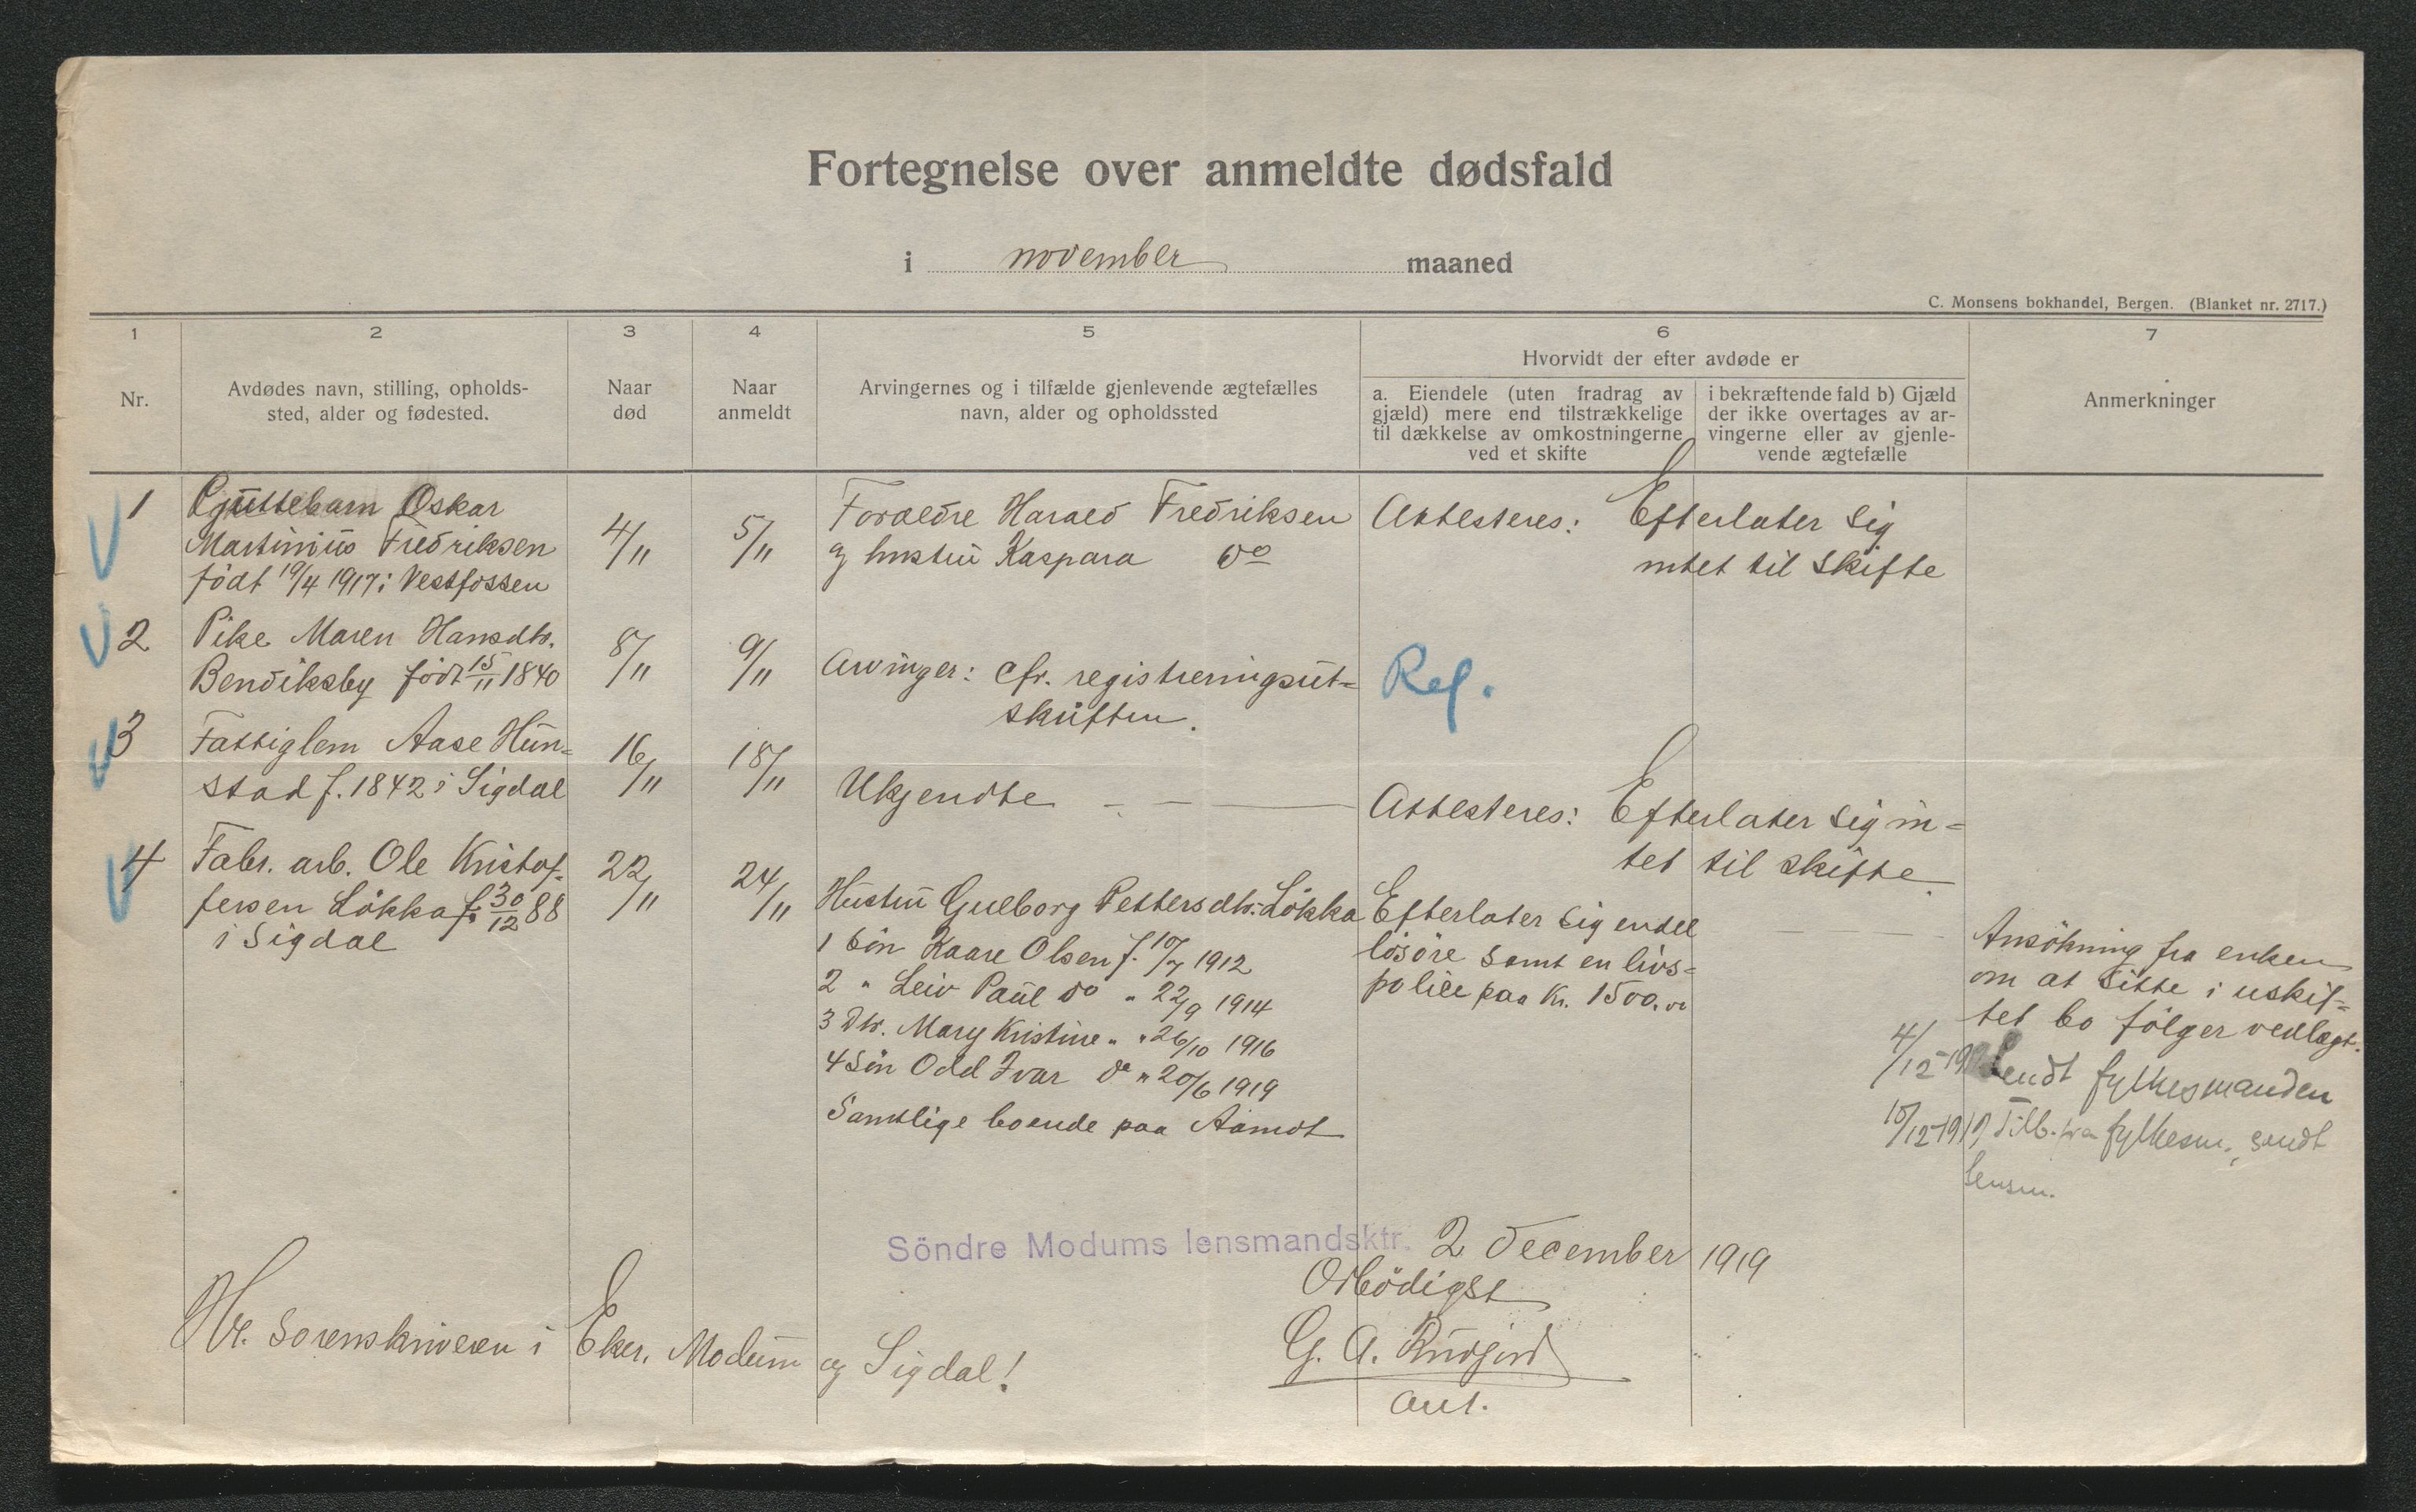 Fortegnelse over anmeldte dødsfald
i november maaned
C. Monsens bokhandel, Bergen. (Blanket nr. 2717.)
1 2 3 4 5 6 7
Hvorvidt der efter avdøde er
Nr.
Avdødes navn, stilling, opholds-
sted, alder og fødested.
Naar
død
Naar
anmeldt
Arvingernes og i tilfælde gjenlevende ægtefælles
navn, alder og opholdssted
a. Eiendele (uten fradrag av
gjæld) mere end tilstrækkelige
til dækkelse av omkostningerne
ved et skifte
i bekræftende fald b) Gjæld
der ikke overtages av ar-
vingerne eller av gjenle-
vende ægtefælle
Anmerkninger
1
Guttebarn Oskar
Martinius Fredriksen
födt 19/4 1917 i Vestfossen
4/11
5/11
Forældre Harald Fredriksen
og hustru Kaspara do
Attesteres: Efterlater sig
intet til skifte
2
Pike Maren Hansdtr.
Bendiksby födt 15/11 1840
8/11
9/11
Arvinger: cfr. registreringsut-
skriften.
Ref.
3
Fattiglem Aase Hun-
stad f. 1842 i Sigdal
16/11
18/11
Ukjendte
Attesteres: Efterlater sig in-
tet til skifte
4
Fabr. arb. Ole Kristof-
fersen Lökka f. 30/12 88
i Sigdal
22/11
24/11
Hustru Gulborg Pettersdtr. Lökka
1 Sön Kaare Olsen f. 10/7 1912
2 " Leiv Paul do " 22/9 1914
3 Dtr. Mary Kristine " " 26/10 1916
4 Sön Odd Ivar do " 20/6 1919
Samtlige boende paa Aamot
Efterlater sig endel
lösöre samt en livs-
police paa Kr. 1500.00
Ansökning fra enken
om at sitte i uskif-
tet bo fölger vedlagt.
4/12-19 Sendt fylkesmanden
10/12-1919 Tilb. fra fylkesm., sendt
lensm.
Söndre Modums lensmandsktr. 2 December 1919
Ærbödigst
G. A.
aut.
Hr. Sorenskriveren i Eker, Modum og Sigdal!